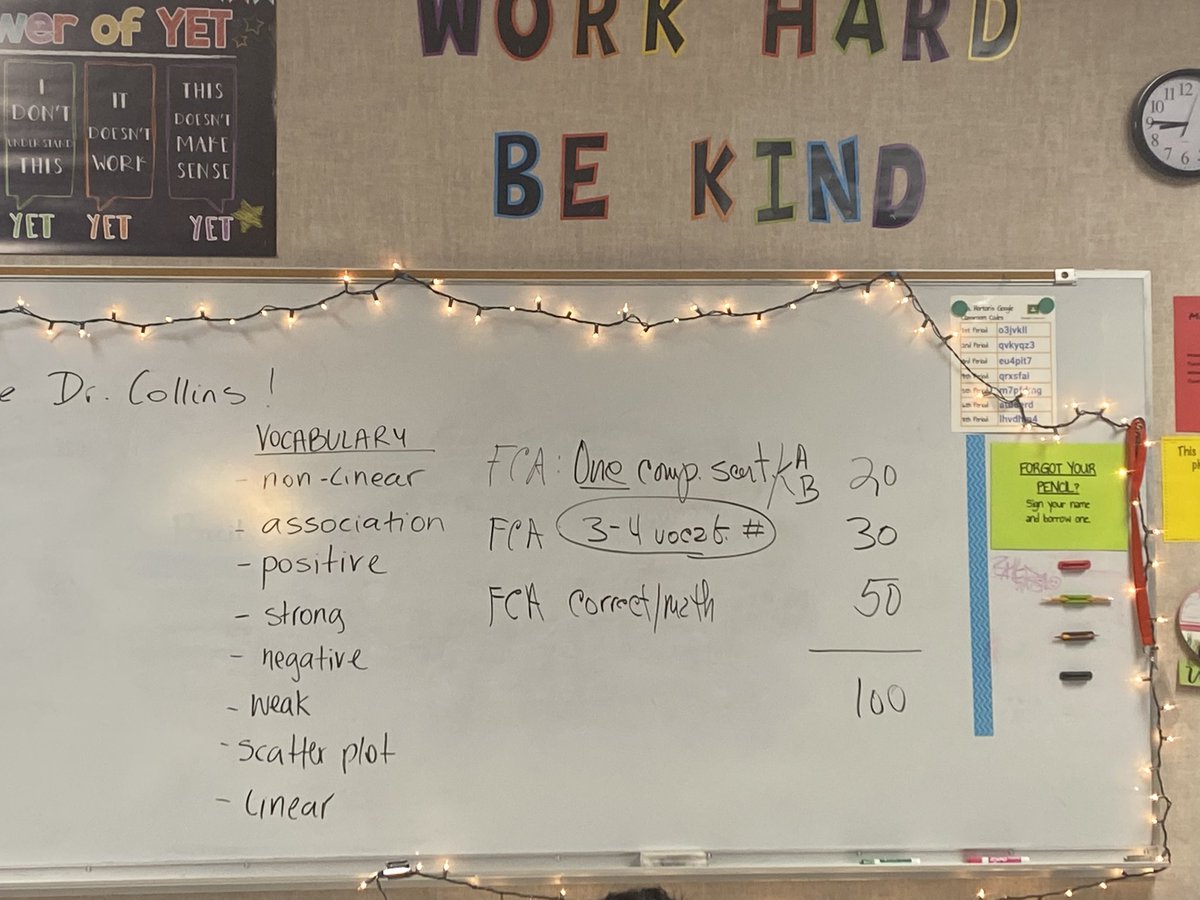 WORK HARD
BE KIND
wer of YET
I DON'T UNDERSTAND THIS
YET
IT DOESN'T WORK
YET
THIS DOESN'T MAKE SENSE
YET
11 12
10
9
8
7 6
e Dr. Collins!
VOCABULARY
- non-linear
- association
- positive
- strong
- negative
- weak
- scatter plot
- linear
FCA: One comp. sent/ A B 20
FCA 3-4 vocab. # 30
FCA correct/math 50
100
Horton's Google
Classroom Codes
1st Period o3jvkll
2nd Period qvkyqz3
3rd Period eu4pit7
4th Period qrxsfai
5th Period
6th Period
7th Period
FORGOT YOUR
PENCIL?
Sign your name
and borrow one.
This